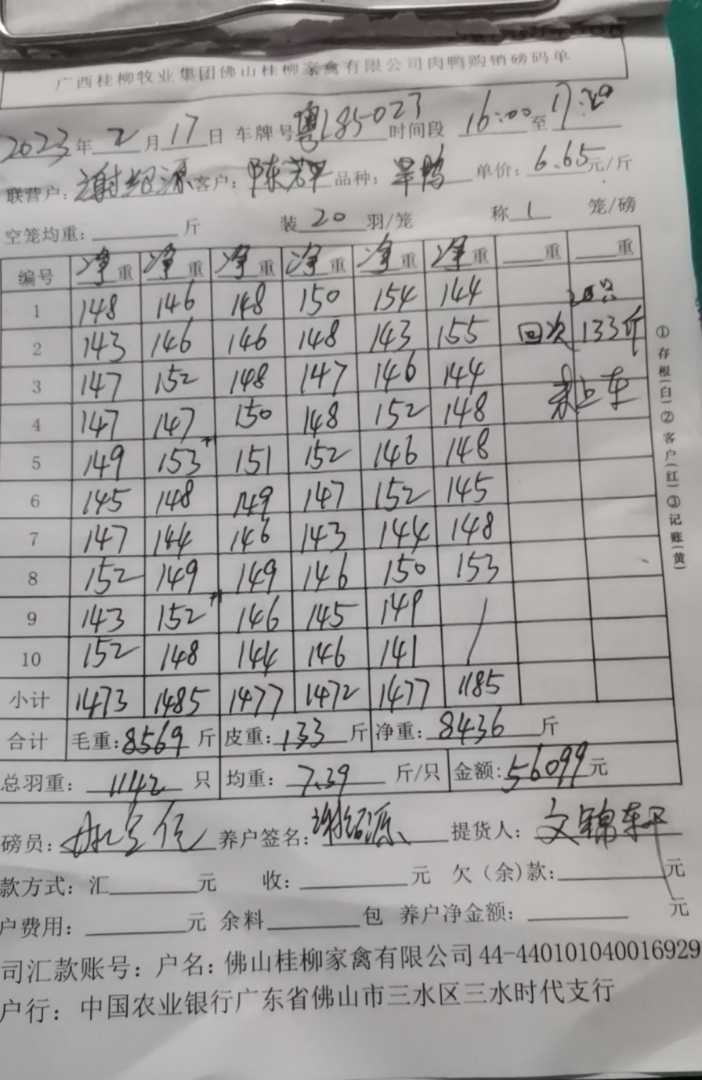 广西桂柳牧业集团佛山桂柳家禽有限公司肉鸭购销磅码单
2023年2月17日 车牌号粤L85023时间段 16:00至17:20
联营户:谢绍源 客户:陈若平 品种:旱鸭 单价:6.65元/斤
空笼均重:______斤 装20羽/笼 称1笼/磅
编号 净重 净重 净重 净重 净重 净重 ___重 ___重
1 148 146 148 150 154 144 20只
2 143 146 146 148 143 155 回次 133斤
3 147 152 148 147 146 144
4 147 147 150 148 152 148 上车
5 149 153 151 152 146 148
6 145 148 149 147 152 145
7 147 144 146 143 144 148
8 152 149 149 146 150 153
9 143 152 146 145 149 /
10 152 148 144 146 141
小计 1473 1485 1477 1472 1477 1185
合计 毛重:8569斤 皮重:133斤 净重:8436斤
总羽重:1142只 均重:7.39斤/只 金额:56099元
磅员: 养户签名:谢绍源 提货人:文锦轩
款方式:汇______元 收:______元 欠(余)款:______元
户费用:______元 余料______包 养户净金额:______元
司汇款账号:户名:佛山桂柳家禽有限公司 44-440101040016929
户行:中国农业银行广东省佛山市三水区三水时代支行
①存根(白)②客户(红)③记账(黄)